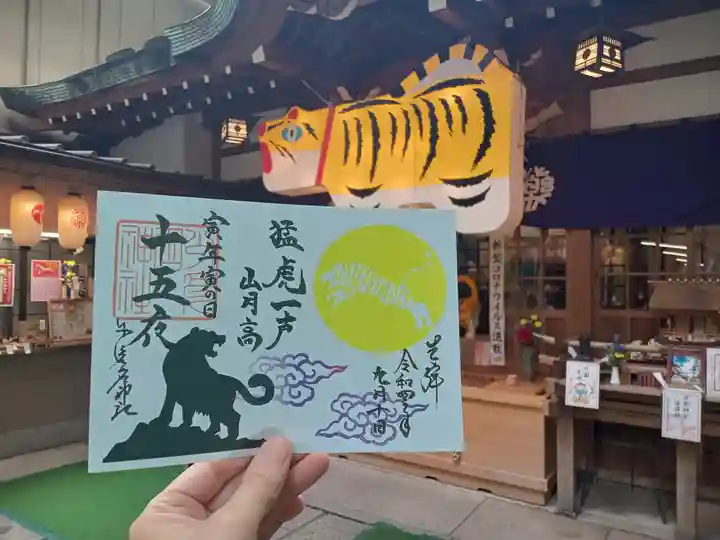 猛虎一声
山月高
寅年寅の日
十五夜
少彦名神社
奉拝
令和四年
九月十日
新型コロナウイルス退散
薬